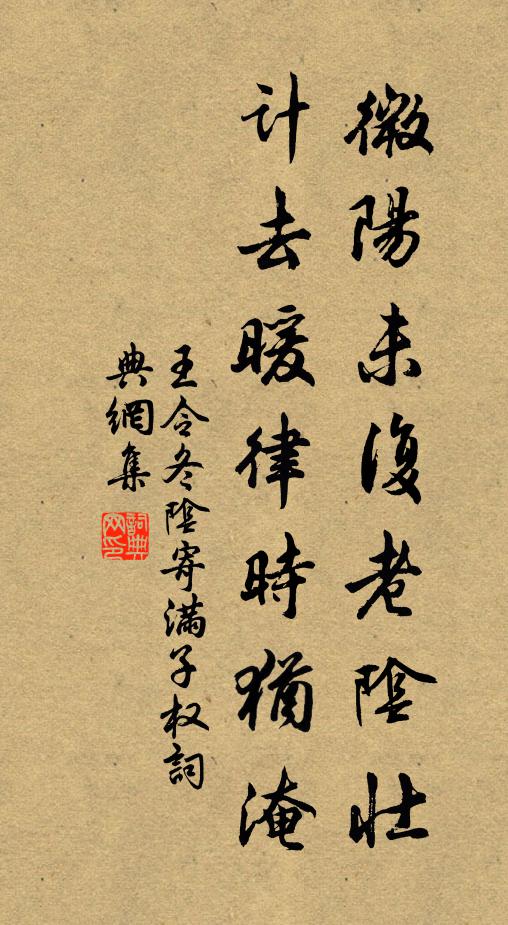 微陽未復老陰壯
計去暖律時猶淹
王令冬陰寄滿子权詞
典網集
詞典
网印